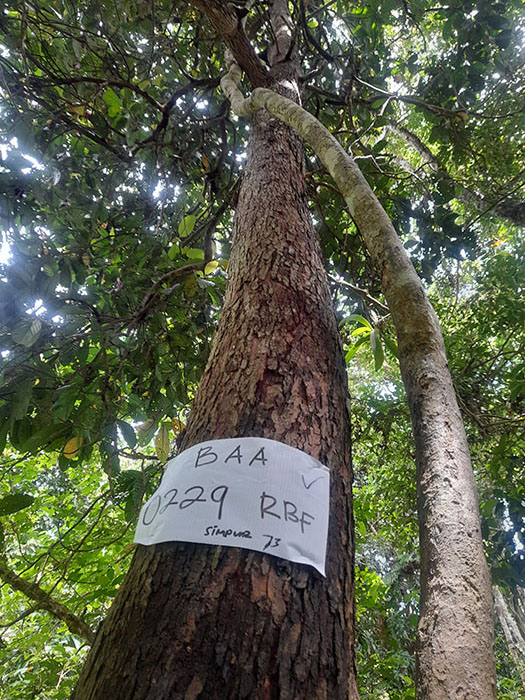 BAA ✓
0229 RBF
SIMPUR 73